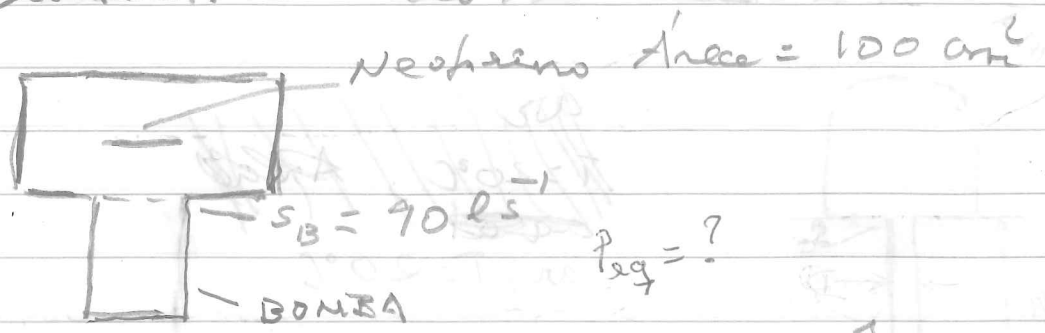 Neopreno Área = 100 cm²
S_B = 90 l s⁻¹
P_eq = ?
BOMBA